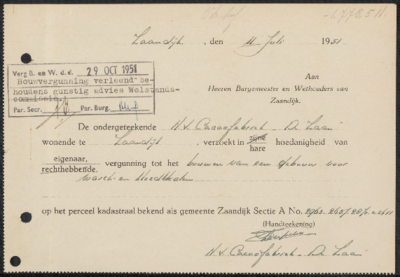 Zaandijk, den 11 Juli 1951
Verg B. en W. d.d. 29 OCT 1951
Bouwvergunning verleend be-
houdens gunstig advies Welstands-
commissie.
Par. Secr. Par. Burg.
Aan
Heeren Burgemeester en Wethouders van
Zaandijk.
De ondergeteekende N.V. Cacaofabriek „De Zaan"
wonende te Zaandijk, verzoekt in zijne hoedanigheid van
hare
eigenaar, vergunning tot het bouwen van een gebouw voor
rechthebbende.
op het perceel kadastraal bekend als gemeente Zaandijk Sectie A No.
(Handteekening)
N.V. Cacaofabriek „De Zaan"